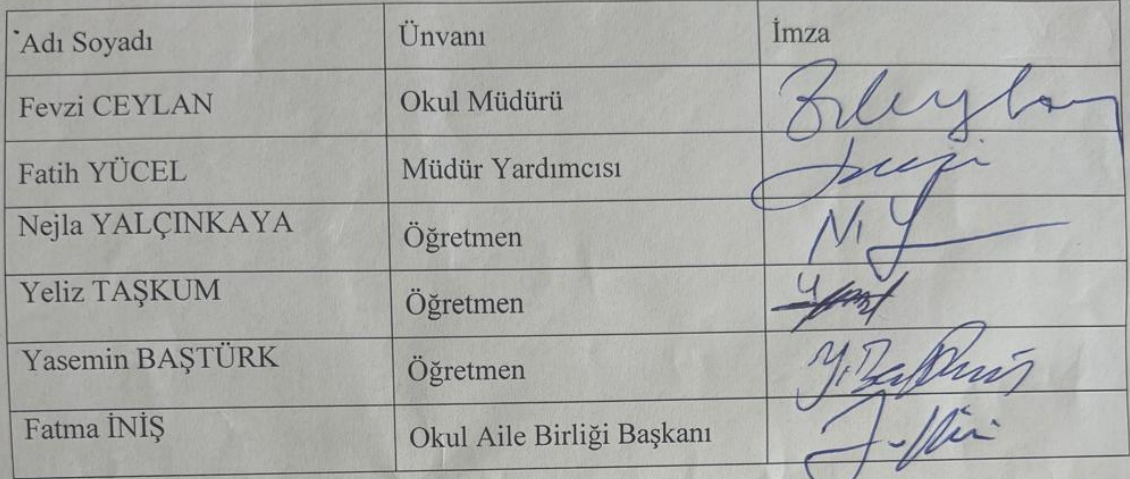 Adı Soyadı Ünvanı İmza
Fevzi CEYLAN Okul Müdürü
Fatih YÜCEL Müdür Yardımcısı
Nejla YALÇINKAYA Öğretmen
Yeliz TAŞKUM Öğretmen
Yasemin BAŞTÜRK Öğretmen
Fatma İNİŞ Okul Aile Birliği Başkanı